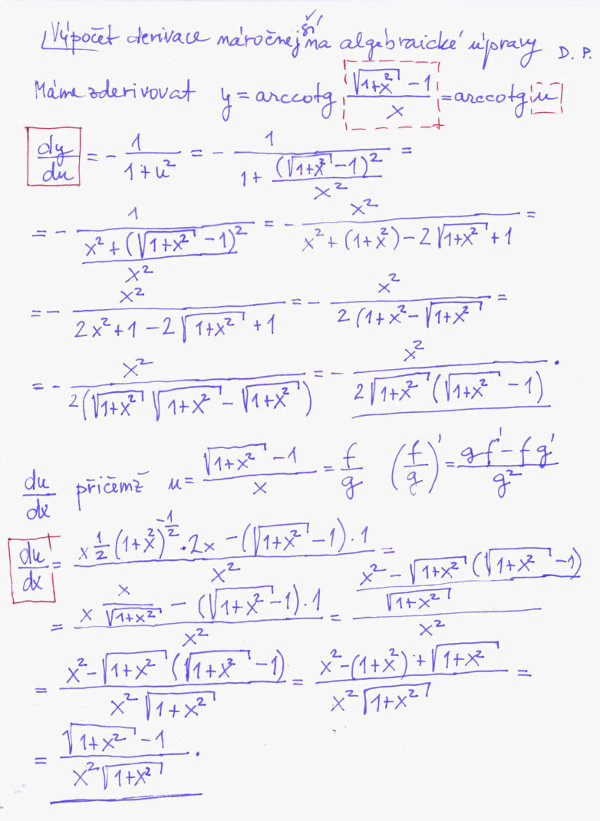 Výpočet derivace náročnější na algebraické úpravy D. P.
Máme zderivovat y = arccotg (√(1+x²) - 1)/x = arccotg u
dy/du = - 1/(1+u²) = - 1/(1 + (√(1+x²) - 1)²/x²) =
= - 1/((x² + (√(1+x²) - 1)²)/x²) = - x²/(x² + (1+x²) - 2√(1+x²) + 1) =
= - x²/(2x² + 1 - 2√(1+x²) + 1) = - x²/(2(1+x² - √(1+x²)) =
= - x²/(2(√(1+x²) √(1+x²) - √(1+x²))) = - x²/(2√(1+x²) (√(1+x²) - 1)) .
du/dx přičemž u = (√(1+x²) - 1)/x = f/g (f/g)' = (gf' - fg')/g²
du/dx = (x ½ (1+x²)^(-½) · 2x - (√(1+x²) - 1) · 1)/x² =
= (x x/√(1+x²) - (√(1+x²) - 1) · 1)/x² = ((x² - √(1+x²) (√(1+x²) - 1))/√(1+x²))/x²
= (x² - √(1+x²) (√(1+x²) - 1))/(x² √(1+x²)) = (x² - (1+x²) + √(1+x²))/(x² √(1+x²)) =
= (√(1+x²) - 1)/(x² √(1+x²)) .